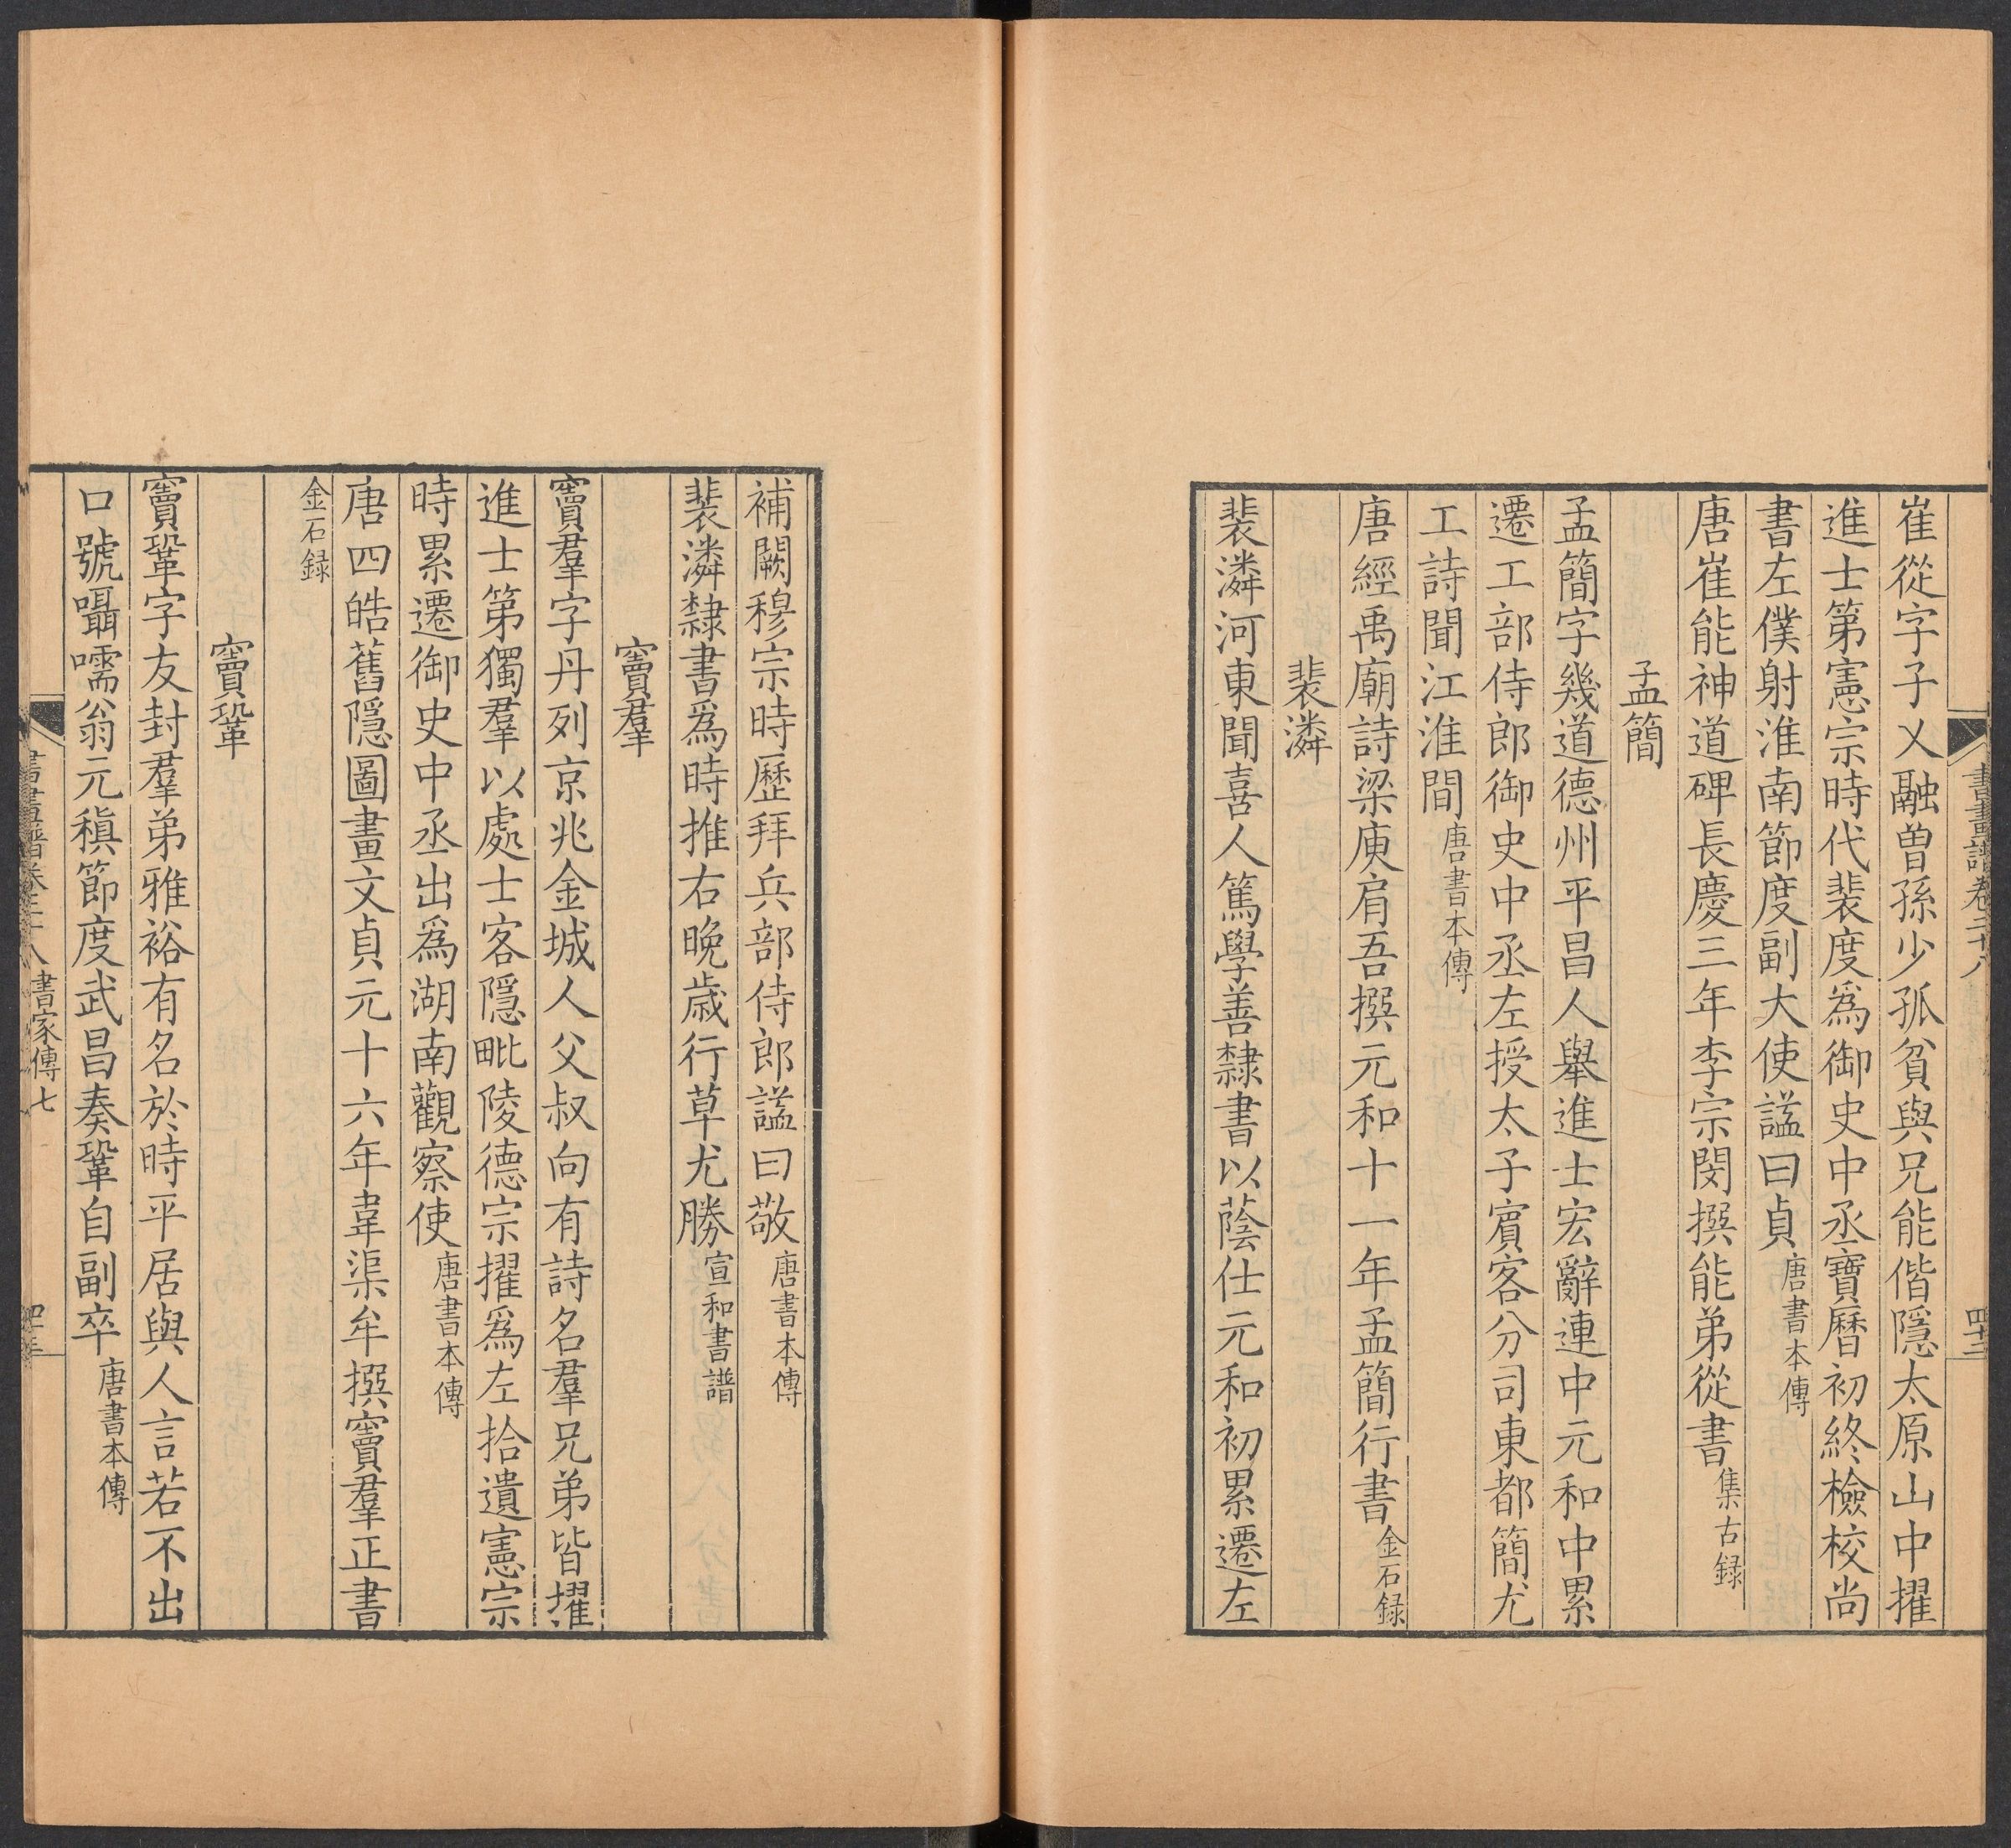 崔從字子乂融曾孫少孤貧與兄能偕隱太原山中擢
進士第憲宗時代裴度爲御史中丞寶曆初終檢校尚
書左僕射淮南節度副大使諡曰貞唐書本傳
唐崔能神道碑長慶三年李宗閔撰能弟從書集古録
孟簡
孟簡字幾道德州平昌人舉進士宏辭連中元和中累
遷工部侍郎御史中丞左授太子賓客分司東都簡尤
工詩聞江淮間唐書本傳
唐經禹廟詩梁庾肩吾撰元和十一年孟簡行書金石録
裴潾
裴潾河東聞喜人篤學善隸書以蔭仕元和初累遷左
書畫譜卷二十八
四十三
補闕穆宗時歷拜兵部侍郎諡曰敬唐書本傳
裴潾隸書爲時推右晚歳行草尤勝宣和書譜
竇羣
竇羣字丹列京兆金城人父叔向有詩名羣兄弟皆擢
進士第獨羣以處士客隱毗陵德宗擢爲左拾遺憲宗
時累遷御史中丞出爲湖南觀察使唐書本傳
唐四皓舊隱圖畫文貞元十六年韋渠牟撰竇羣正書
金石録
竇鞏
竇鞏字友封羣弟雅裕有名於時平居與人言若不出
口號囁嚅翁元稹節度武昌奏鞏自副卒唐書本傳
書畫譜卷二十八 書家傳七